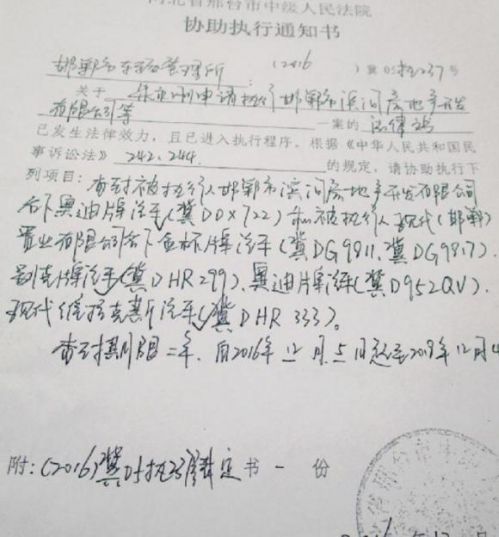 河北省邢台市中级人民法院
协助执行通知书
邯郸市车辆管理所 (2016) 冀05执237号
关于 申请执行邯郸市滨河房地产开发
有限公司等 一案的 法律
已发生法律效力，且已进入执行程序。根据《中华人民共和国民
事诉讼法》 242、244 的规定，请协助执行下
列项目：查封被执行人邯郸市滨河房地产开发有限公司
名下奥迪牌汽车(冀D0X722)和被执行人现代(邯郸)
置业有限公司名下金杯牌汽车(冀DG9811、冀DG9817)、
别克牌汽车(冀DHR299)、奥迪牌汽车(冀D952QV)、
现代维拉克斯汽车(冀DHR333)。
查封期限三年，自2016年12月5日起至2019年12月4
附：(2016)冀05执237 裁定书一份